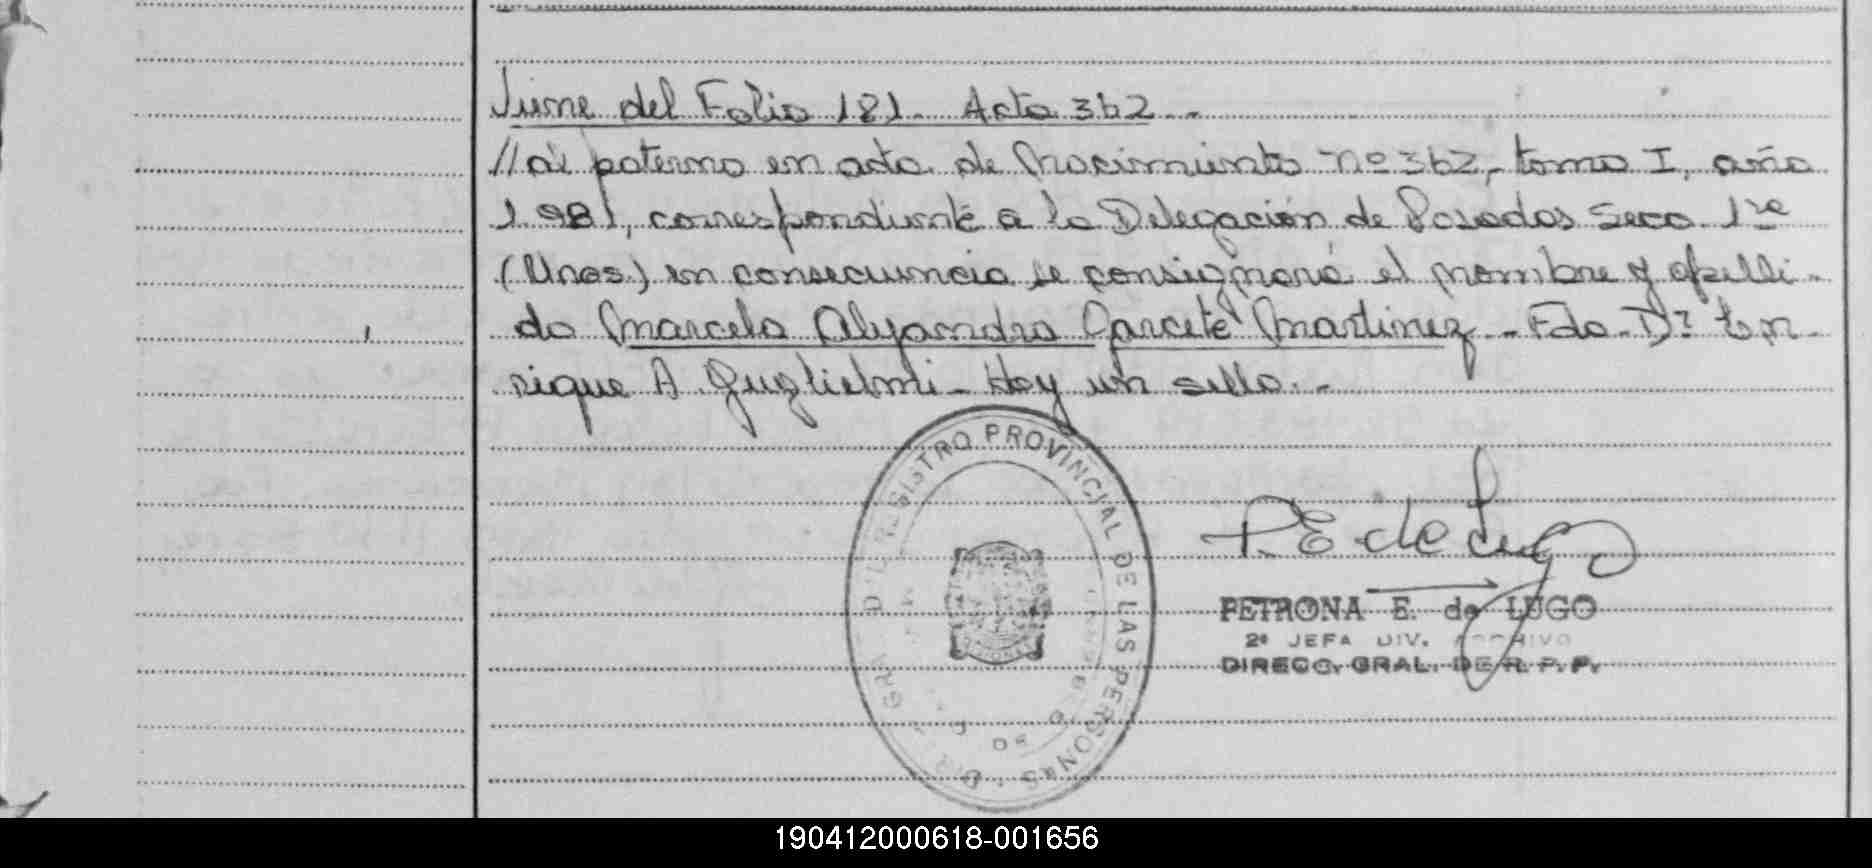 Viene del Folio 181. Acta 362.-
//al paterno en acta de Nacimiento nº 362, tomo I, año
1.981, correspondiente a la Delegación de Posadas Secc. 1ra
(Unos) en consecuencia se consignará el nombre y apelli-
do Marcelo Alejandro Garcete Martinez - Fdo. Dr. En-
rique A Guglielmi - Hay un sello.-
REGISTRO PROVINCIAL DE LAS PERSONAS
P. E de Lugo
PETRONA E. de LUGO
2ª JEFA DIV. ARCHIVO
DIRECC. GRAL. DE R. P. P.
190412000618-001656